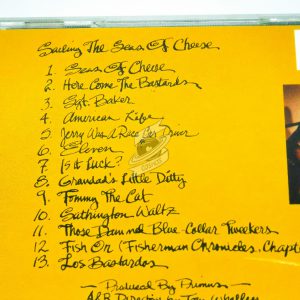 Sailing The Seas Of Cheese
1. Seas Of Cheese
2. Here Come The Bastards
3. Sgt. Baker
4. American Life
5. Jerry Was A Race Car Driver
6. Eleven
7. Is It Luck?
8. Grandad's Little Ditty
9. Tommy The Cat
10. Sathington Waltz
11. Those Damned Blue-Collar Tweekers
12. Fish On (Fisherman Chronicles, Chapt
13. Los Bastardos
Produced By Primus
A&R Direction